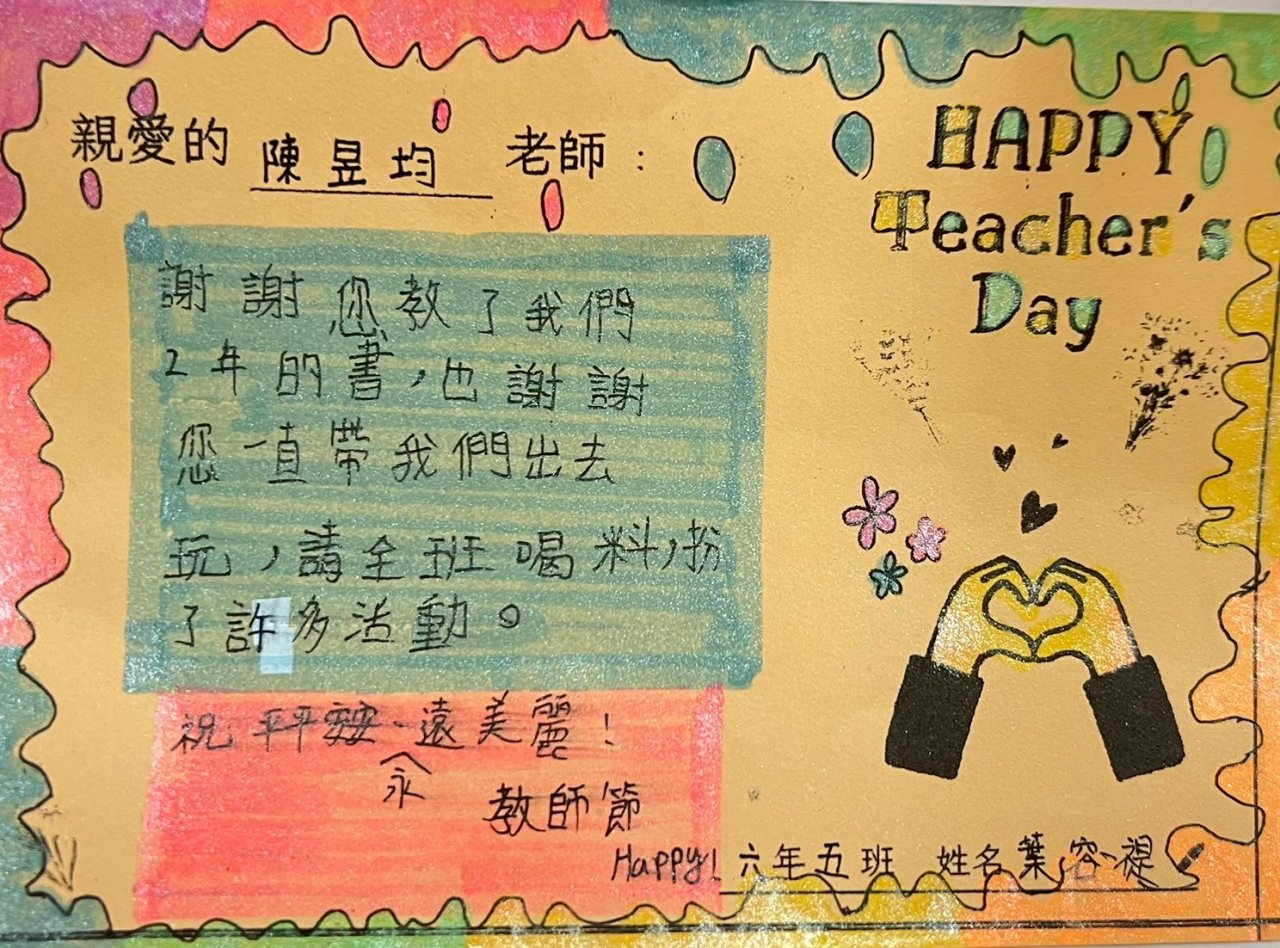 親愛的 陳昱均 老師：
HAPPY
Teacher's
Day
謝謝您教了我們
2年的書，也謝謝
您一直帶我們出去
玩，請全班喝料，扮
了許多活動。
祝平平安安、永遠美麗！
教師節
Happy! 六年五班 姓名葉容禔